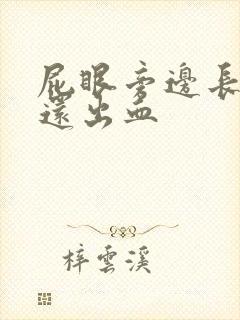 屁眼旁邊長
還出血
梓雲溪